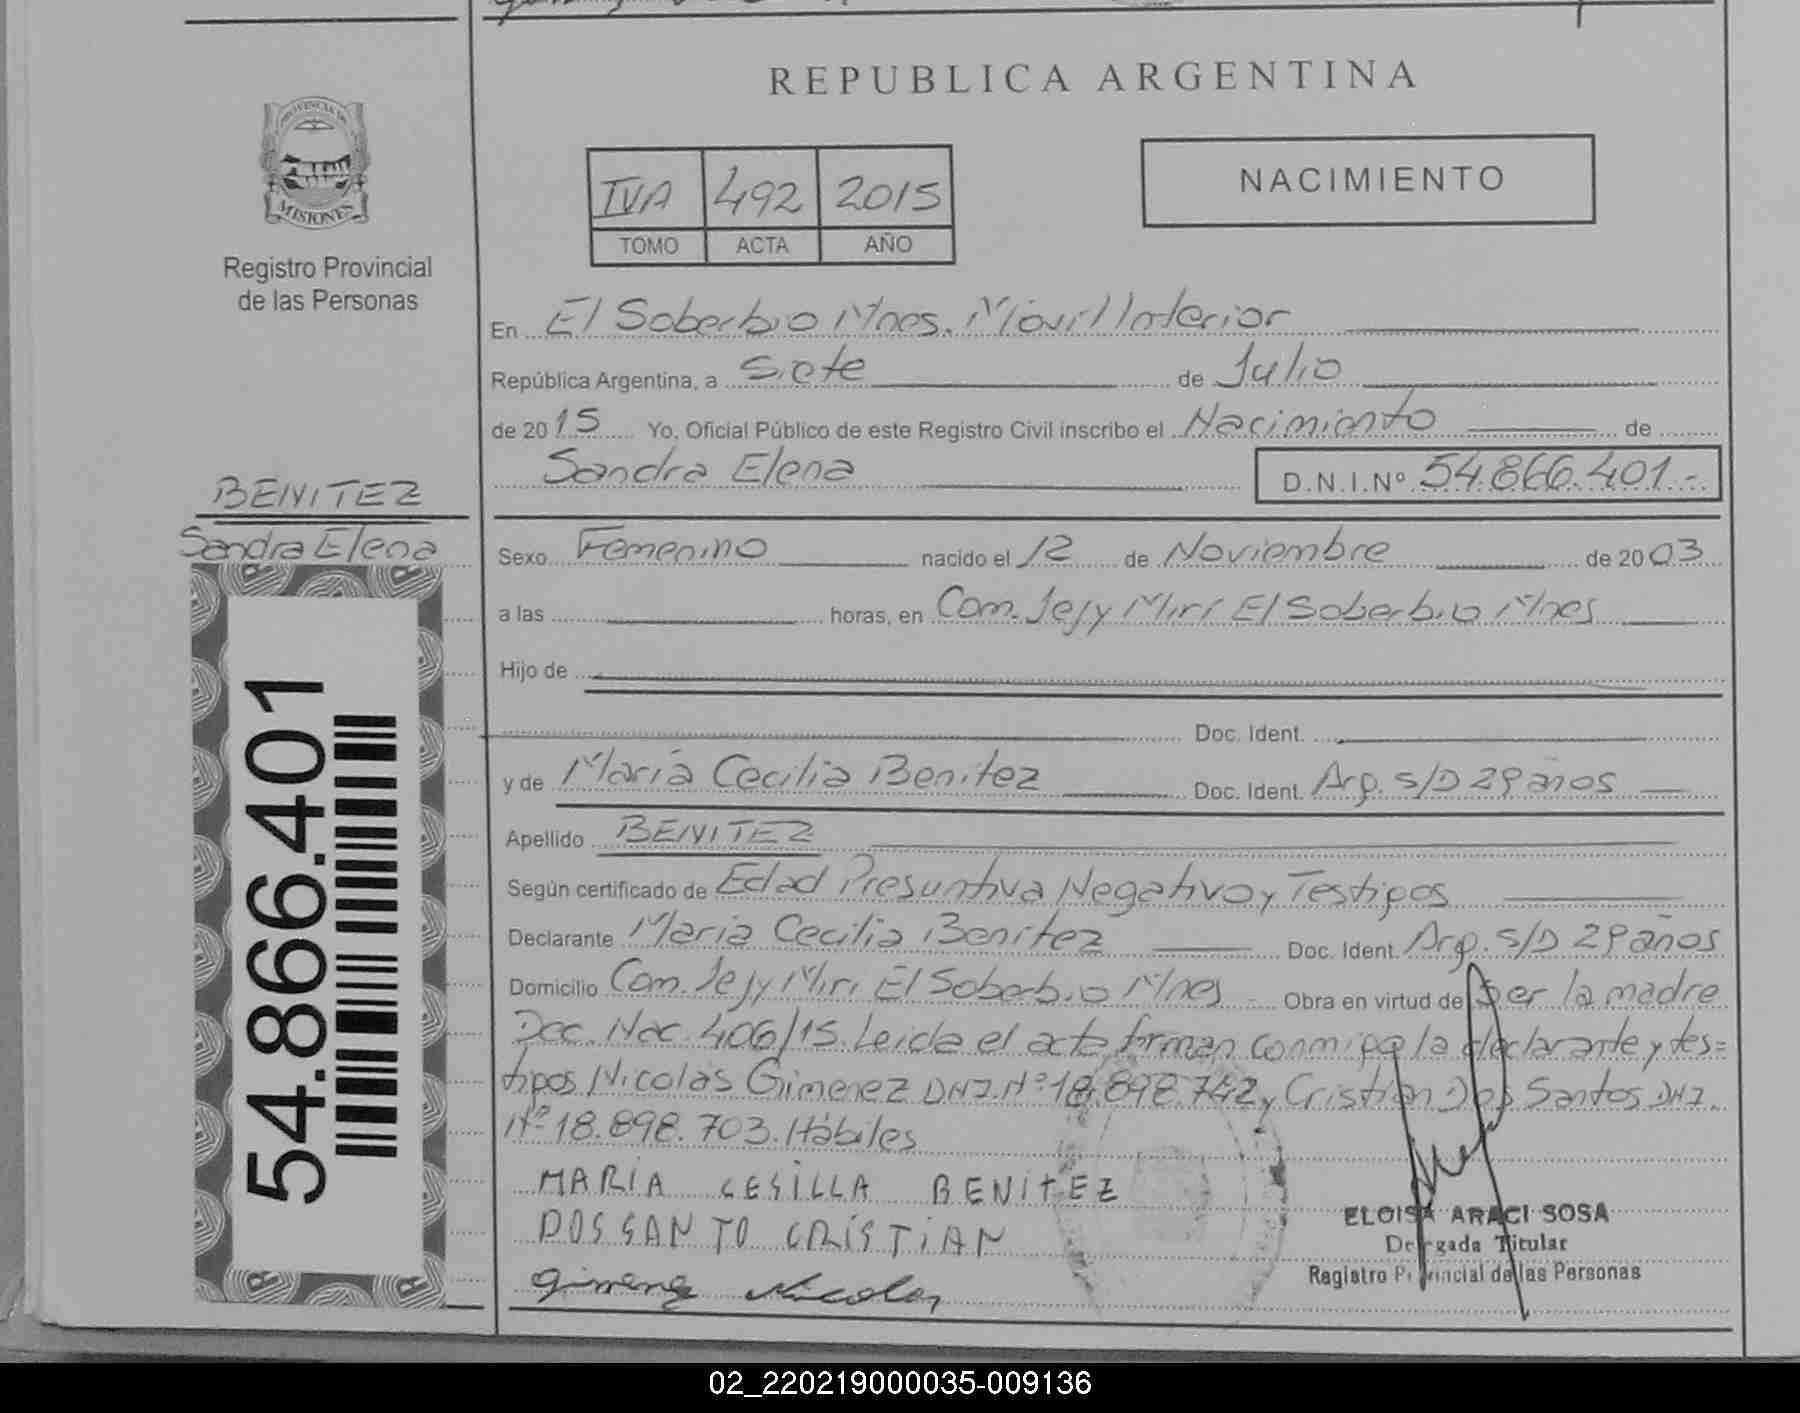 REPUBLICA ARGENTINA
MISIONES
Registro Provincial
de las Personas
IVA 492 2015
TOMO ACTA AÑO
NACIMIENTO
En El Soberbio Mnes. Móvil Interior
República Argentina, a siete de Julio
de 2015 Yo, Oficial Público de este Registro Civil inscribo el Nacimiento de
Sandra Elena D.N.I.Nº 54.866.401.-
BENITEZ
Sandra Elena
54.866.401
Sexo Femenino nacido el 12 de Noviembre de 2003
a las horas, en Com. Jejy Miri El Soberbio Mnes
Hijo de
Doc. Ident.
y de María Cecilia Benitez Doc. Ident. Arg. s/D 29 años
Apellido BENITEZ
Según certificado de Edad Presuntiva Negativo y Testigos
Declarante Maria Cecilia Benitez Doc. Ident. Arg. s/D 29 años
Domicilio Com. Jejy Miri El Soberbio Mnes - Obra en virtud de Ser la madre
Dec. Nac. 406/15. Leida el acta firman conmigo la declarante y tes=
tigos Nicolás Gimenez DNI Nº 18.898.742 y Cristian Dos Santos DNI.
Nº 18.898.703. Hábiles
MARIA CESILLA BENITEZ
DOSSANTO CRISTIAN
Gimenez Nicolas
ELOISA ARACI SOSA
Delegada Titular
Registro Provincial de las Personas
02_220219000035-009136